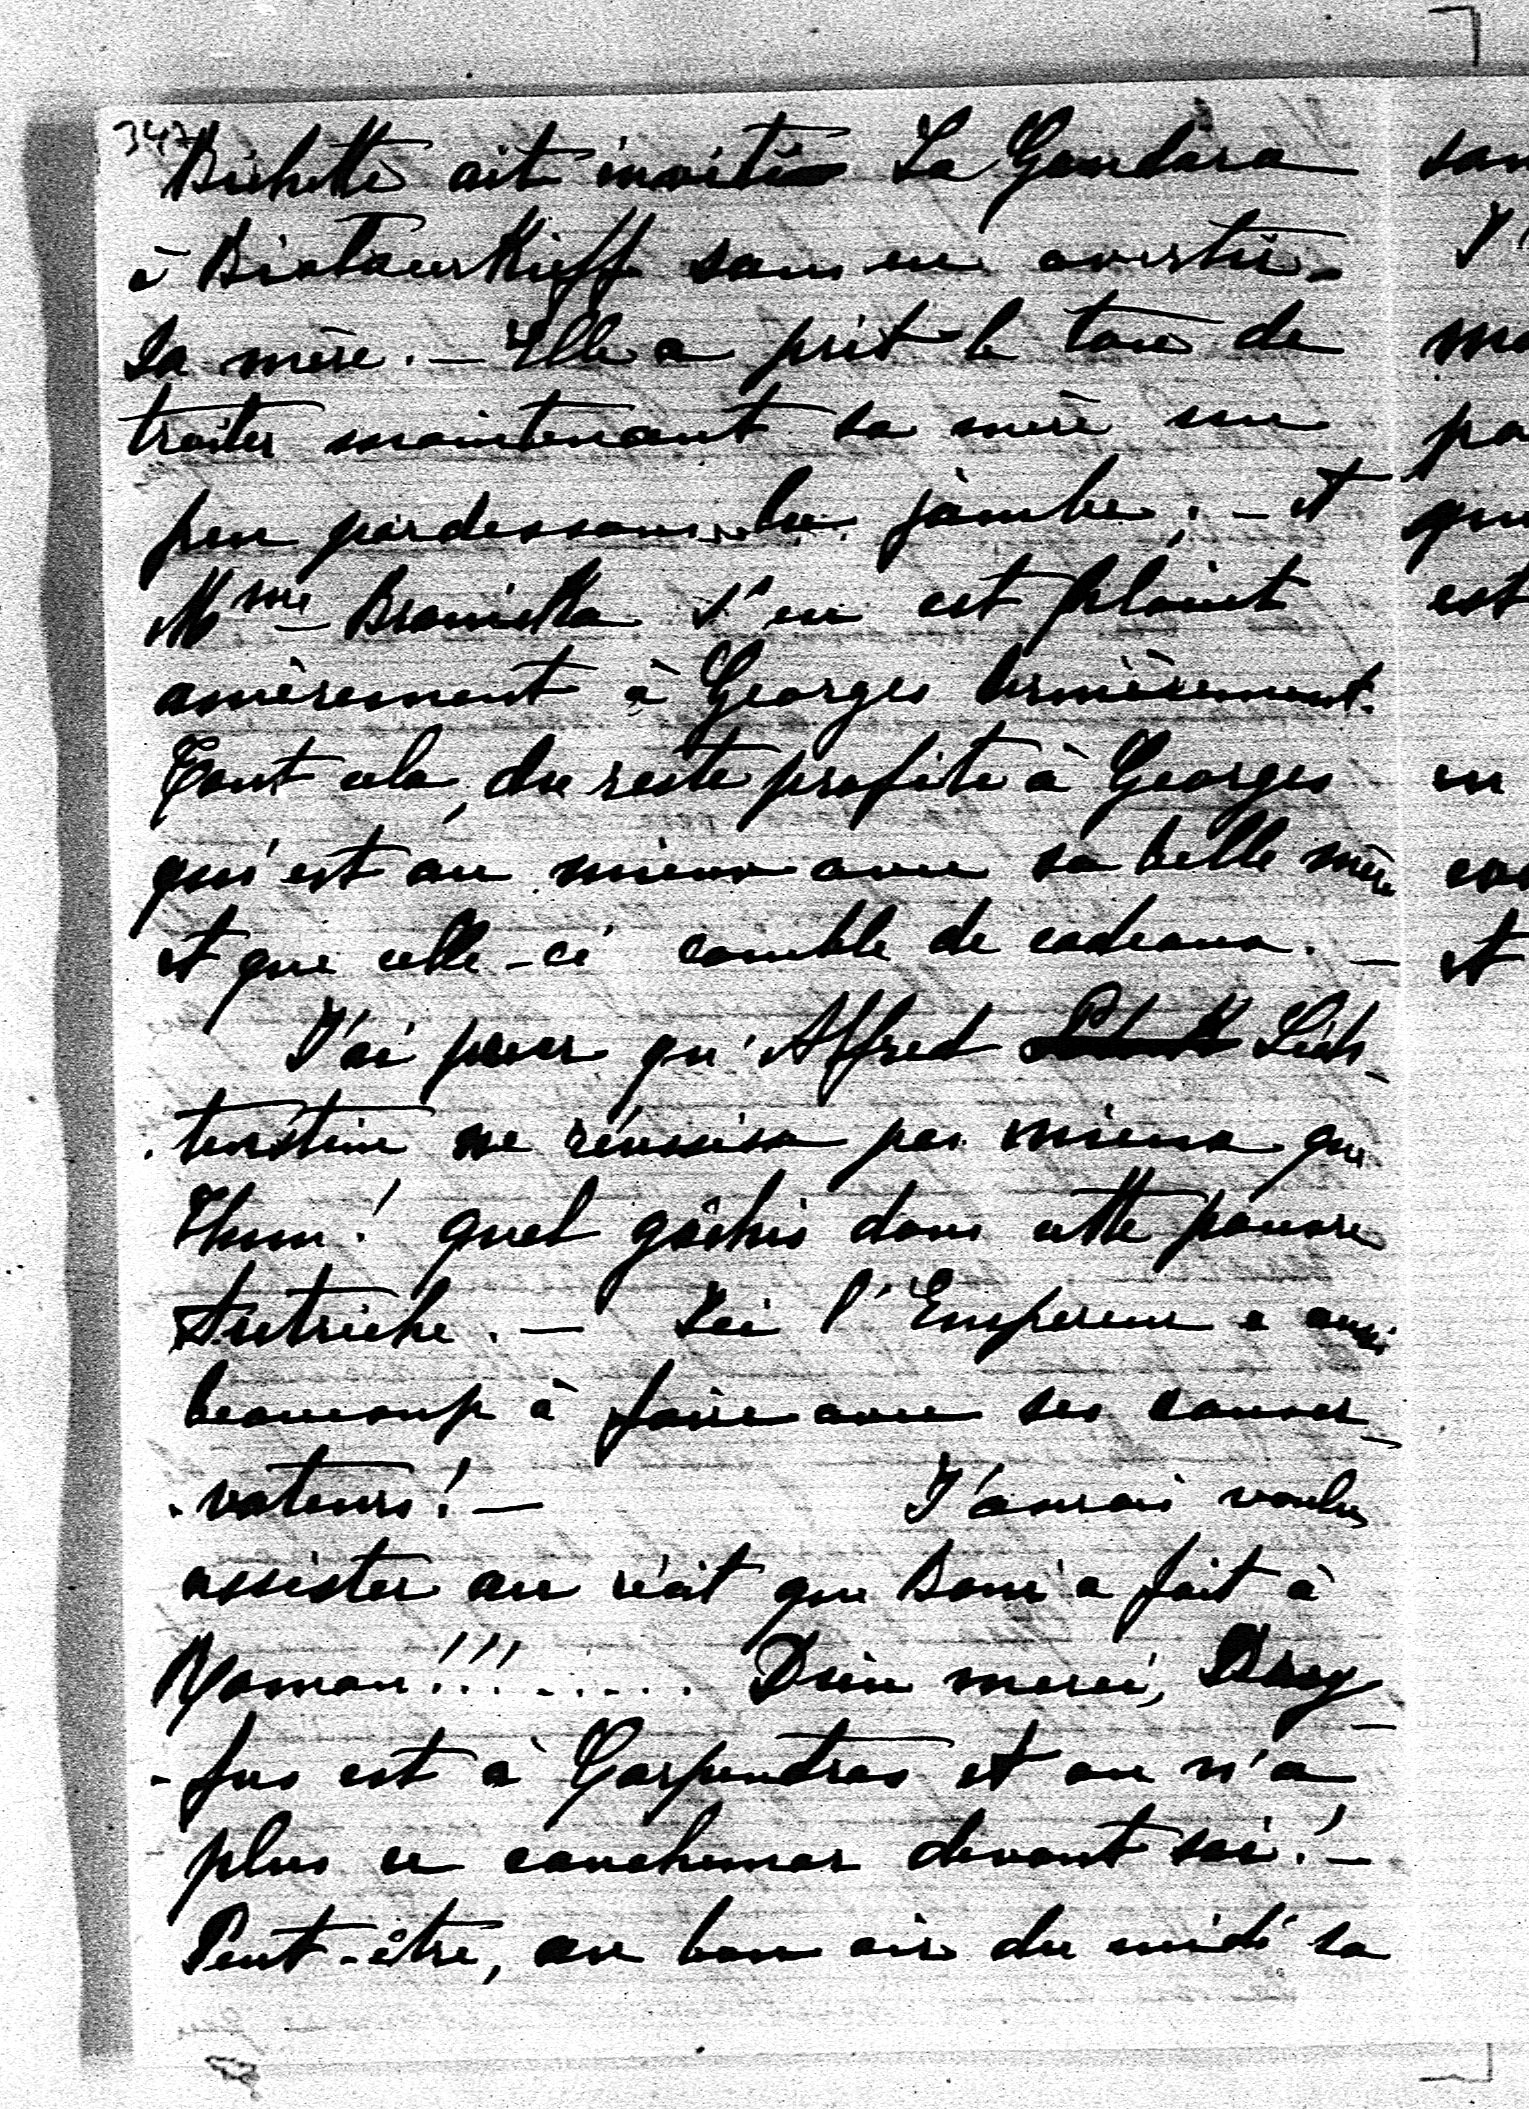 347
Bichette ait invité La Gandara
à Biataerkieff sans en avertir
sa mère. — Elle a prit le ton de
traiter maintenant sa mère un
peu pardessous la jambe; — et
Mme Branicka s'en est plaint
amèrement à Georges dernièrement.
Tout cela, du reste profite à Georges
qui est au mieux avec sa belle mère
et que celle-ci comble de cadeaux. —
J'ai peur qu'Alfred Lich-
-tenstein ne réussira pas mieux que
Thun! quel gâchis dans cette pauvre
Autriche. — Ici l'Empereur a aussi
beaucoup à faire avec ses conser-
-vateurs! — J'aurais voulu
assister au récit que Boni a fait à
Roman!!!...... Dieu merci, Drey-
-fus est à Carpentras et on n'a
plus ce cauchemar devant soi! —
Peut-être, au bon air du midi sa
san
J'
ma
pa
que
est
en
et